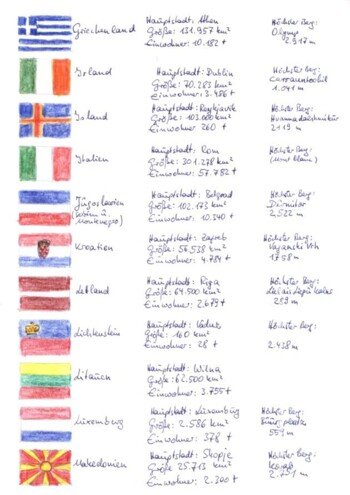 Griechenland
Hauptstadt: Athen
Größe: 131.957 km²
Einwohner: 10.182 t
Höchster Berg:
Olymp
2.917 m
Irland
Hauptstadt: Dublin
Größe: 70.283 km²
Einwohner: 3.486 t
Höchster Berg:
Carrauntoohil
1.041 m
Island
Hauptstadt: Reykjavik
Größe: 103.000 km²
Einwohner 260 t
Höchster Berg:
2119 m
Italien
Hauptstadt: Rom
Größe: 301.278 km²
Einwohner: 57.782 t
Höchster Berg:
(Mont Blanc)
Jugoslawien
(Serbien u.
Montenegro)
Hauptstadt: Belgrad
Größe: 102.173 km²
Einwohner: 10.340 t
Höchster Berg:
Durmitor
2.522 m
Kroatien
Hauptstadt: Zagreb
Größe: 56.538 km²
Einwohner: 4.784 t
Höchster Berg:
Vaganski Vrh
1758 m
Letland
Hauptstadt: Riga
Größe: 64.500 km²
Einwohner: 2.679 t
Höchster Berg:
289 m
Lichtenstein
Hauptstadt: Vaduz
Größe: 160 km²
Einwohner: 28 t
Höchster Berg:
2.438 m
Litauen
Hauptstadt: Wilna
Größe: 62.500 km²
Einwohner: 3.755 t
Luxemburg
Hauptstadt: Luxemburg
Größe: 2.586 km²
Einwohner: 378 t
Höchster Berg:
559 m
Makedonien
Hauptstadt: Skopje
Größe: 25.713 km²
Einwohner: 2.300 t
Höchster Berg:
Korab
2.751 m